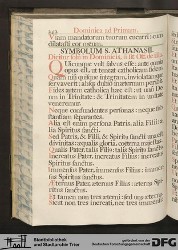 Dominica ad Primam.
Viam mandatorum tuorum cucurri: cum
dilatasti cor meum.
SYMBOLUM S. ATHANASII.
Quicunque vult salvus esse: ante omnia
opus est, ut teneat catholicam fidem.
Quam nisi quisque integram, inviolatamque
servaverit: absque dubio in æternum peribit.
Fides autem catholica hæc est: ut unum Deum
in Trinitate: & Trinitatem in unitate
veneremur.
Neque confundentes personas: neque sub-
stantiam separantes.
Alia est enim persona Patris, alia Filii: a-
lia Spiritus sancti.
Sed Patris, & Filii, & Spiritus sancti una est
divinitas: æqualis gloria, coæterna majestas.
Qualis Pater, talis Filius: talis Spiritus sanctus.
Increatus Pater, increatus Filius: increatus
Spiritus sanctus.
Immensus Pater, immensus Filius: immensus
Spiritus sanctus.
Æternus Pater, æternus Filius: æternus Spiri-
tus sanctus.
Et tamen non tres æterni: sed unus æternus.
Stadtbibliothek
und Stadtarchiv Trier
gefördert durch die
Deutsche Forschungsgemeinschaft
DFG